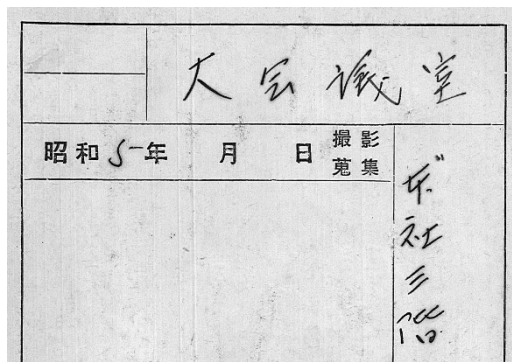 大会議室
昭和5年 月 日 撮影
蒐集
本社三階